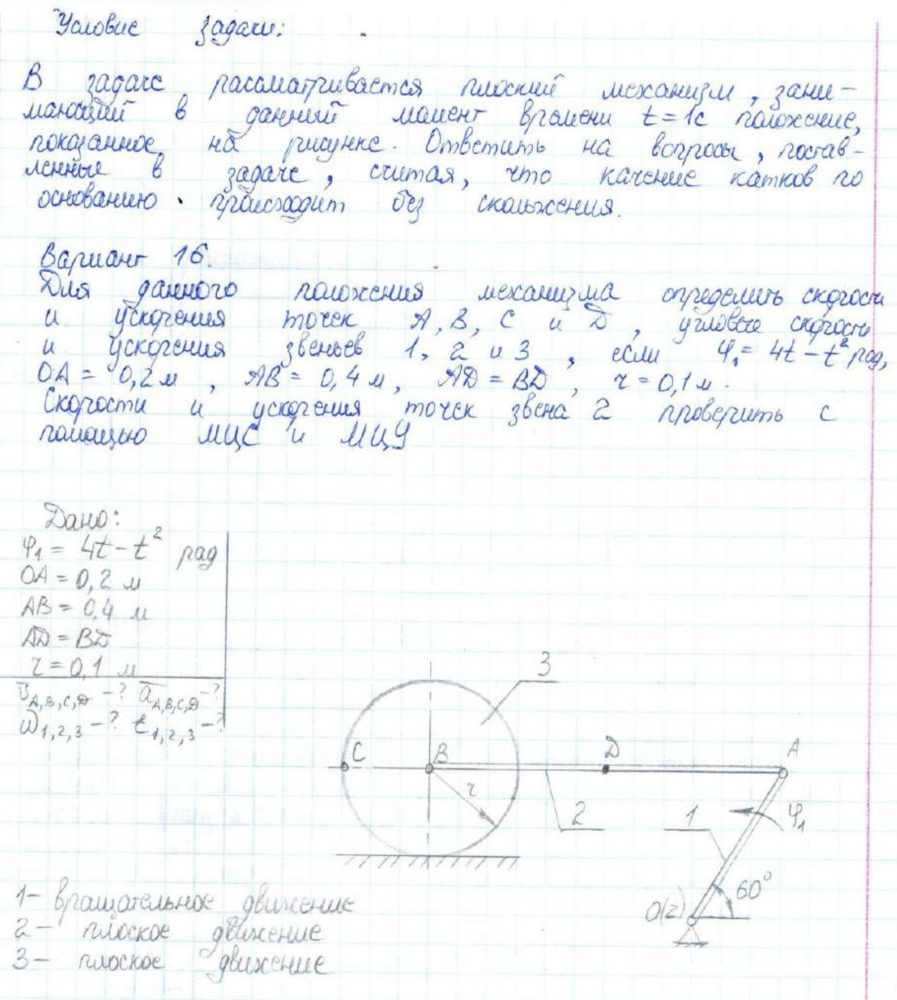 Условие задачи:
В задаче рассматривается плоский механизм, зани-
мающий в данный момент времени t=1с положение,
показанное на рисунке. Ответить на вопросы, постав-
ленные в задаче, считая, что качение катков по
основанию происходит без скольжения.
Вариант 16.
Для данного положения механизма определить скорости
и ускорения точек А, В, С и D, угловые скорости
и ускорения звеньев 1, 2 и 3, если φ₁ = 4t - t² рад,
ОА = 0,2 м, АВ = 0,4 м, АD = BD, r = 0,1 м.
Скорости и ускорения точек звена 2 проверить с
помощью МЦС и МЦУ
Дано:
φ₁ = 4t - t² рад
ОА = 0,2 м
АВ = 0,4 м
АD = BD
r = 0,1 м
υ̅A,B,C,D - ? a̅A,B,C,D - ?
ω̅1,2,3 - ? ε1,2,3 - ?
3
C B D A
r
2 1 φ₁
60°
O(z)
1 - вращательное движение
2 - плоское движение
3 - плоское движение